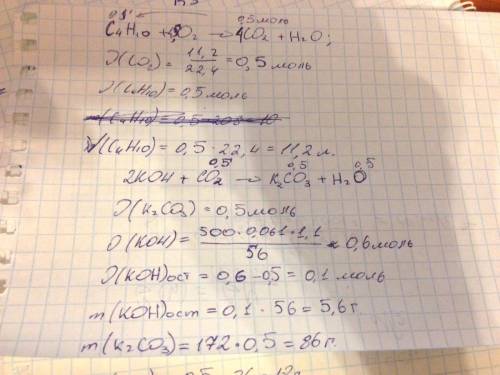 0,5 0,5 моль
C4H10 + O2 → 4CO2 + H2O;
ν(CO2) = 11,2 / 22,4 = 0,5 моль
ν(C4H10) = 0,5 моль
V(C4H10) = 0,5 · 22,4 = 11,2 л.
0,5 0,5 0,5
2KOH + CO2 → K2CO3 + H2O
ν(K2CO3) = 0,5 моль
ν(KOH) = 500 · 0,061 · 1,1 / 56 = 0,6 моль
ν(KOH)ост = 0,6 - 0,5 = 0,1 моль
m(KOH)ост = 0,1 · 56 = 5,6 г.
m(K2CO3) = 172 · 0,5 = 86 г.